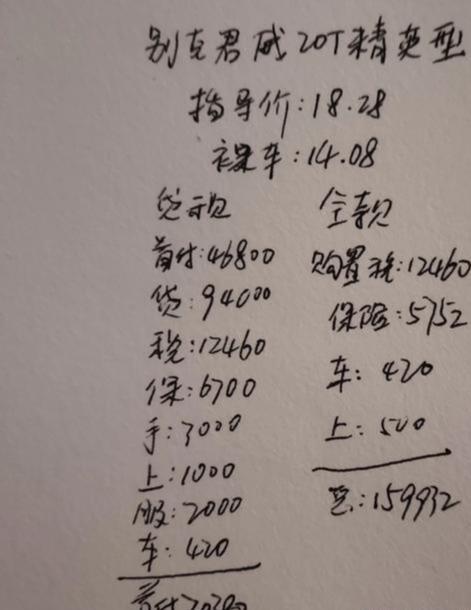 别克君威20T精英型
指导价:18.28
裸车:14.08
贷款
首付:46800
贷:94000
税:12460
保:6700
手:3000
上:1000
服:2000
车:420
全款
购置税:12460
保险:5752
车:420
上:500
总:159932